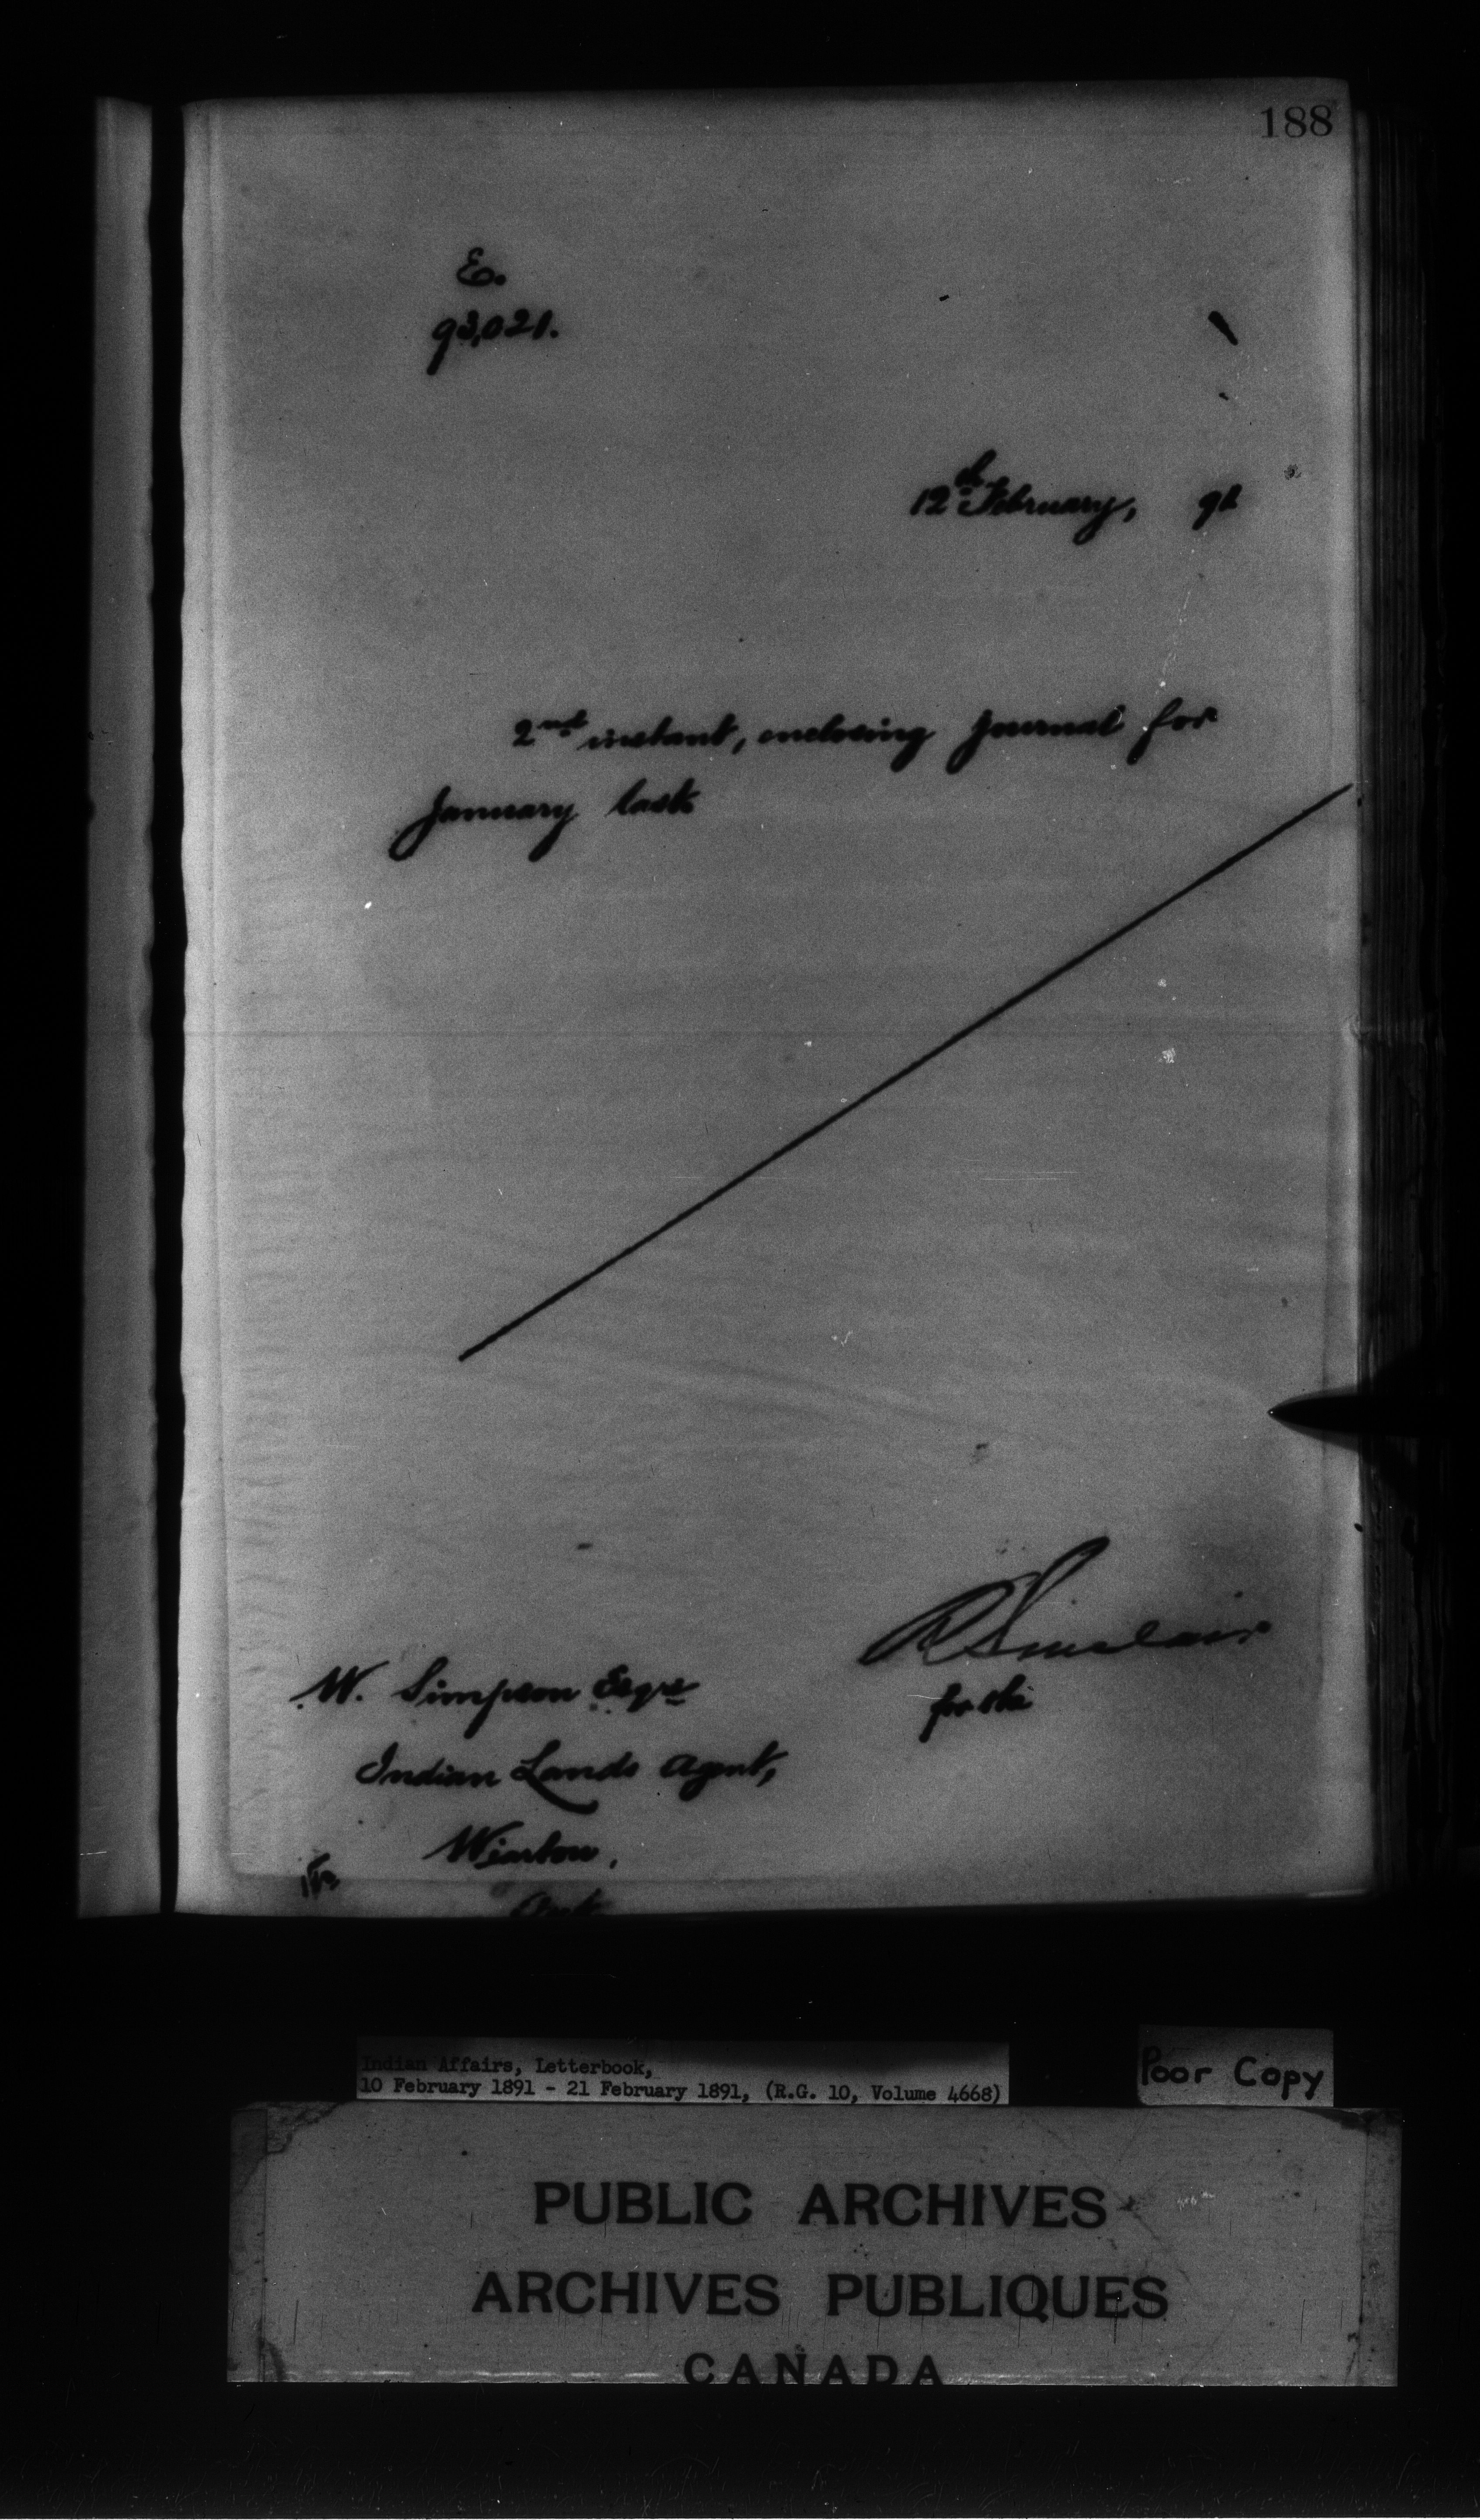 188
E.
93,021.
12th February, 91
2nd instant, enclosing Journal for
January last
R Sinclair
for the
W. Simpson Esqre
Indian Lands Agent,
Wiarton,
Ont
Indian Affairs, Letterbook,
10 February 1891 - 21 February 1891, (R.G. 10, Volume 4668)
Poor Copy
PUBLIC ARCHIVES
ARCHIVES PUBLIQUES
CANADA